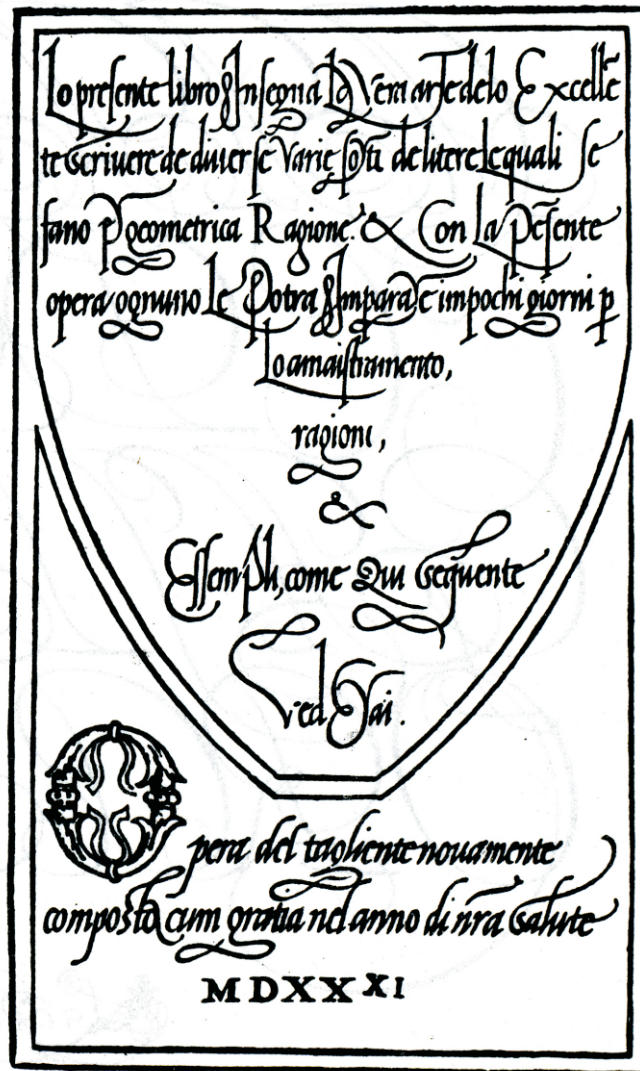 Lo preſente libro Inſegna La Vera arte delo Excellē
te ſcriuere de diuerſe varie ſorti de litere lequali ſe
fano p geometrica Ragione. & Con La p̄ſente
opera ognuno Le Potra Imparare impochi giorni p
Lo amaiſtramento,
ragioni,
&
Eſſempli, come Qui ſequente
Vedrai.
Opera del tagliente nouamente
compoſto cum gratia nel anno di nr̄a ſalute
MDXXXI